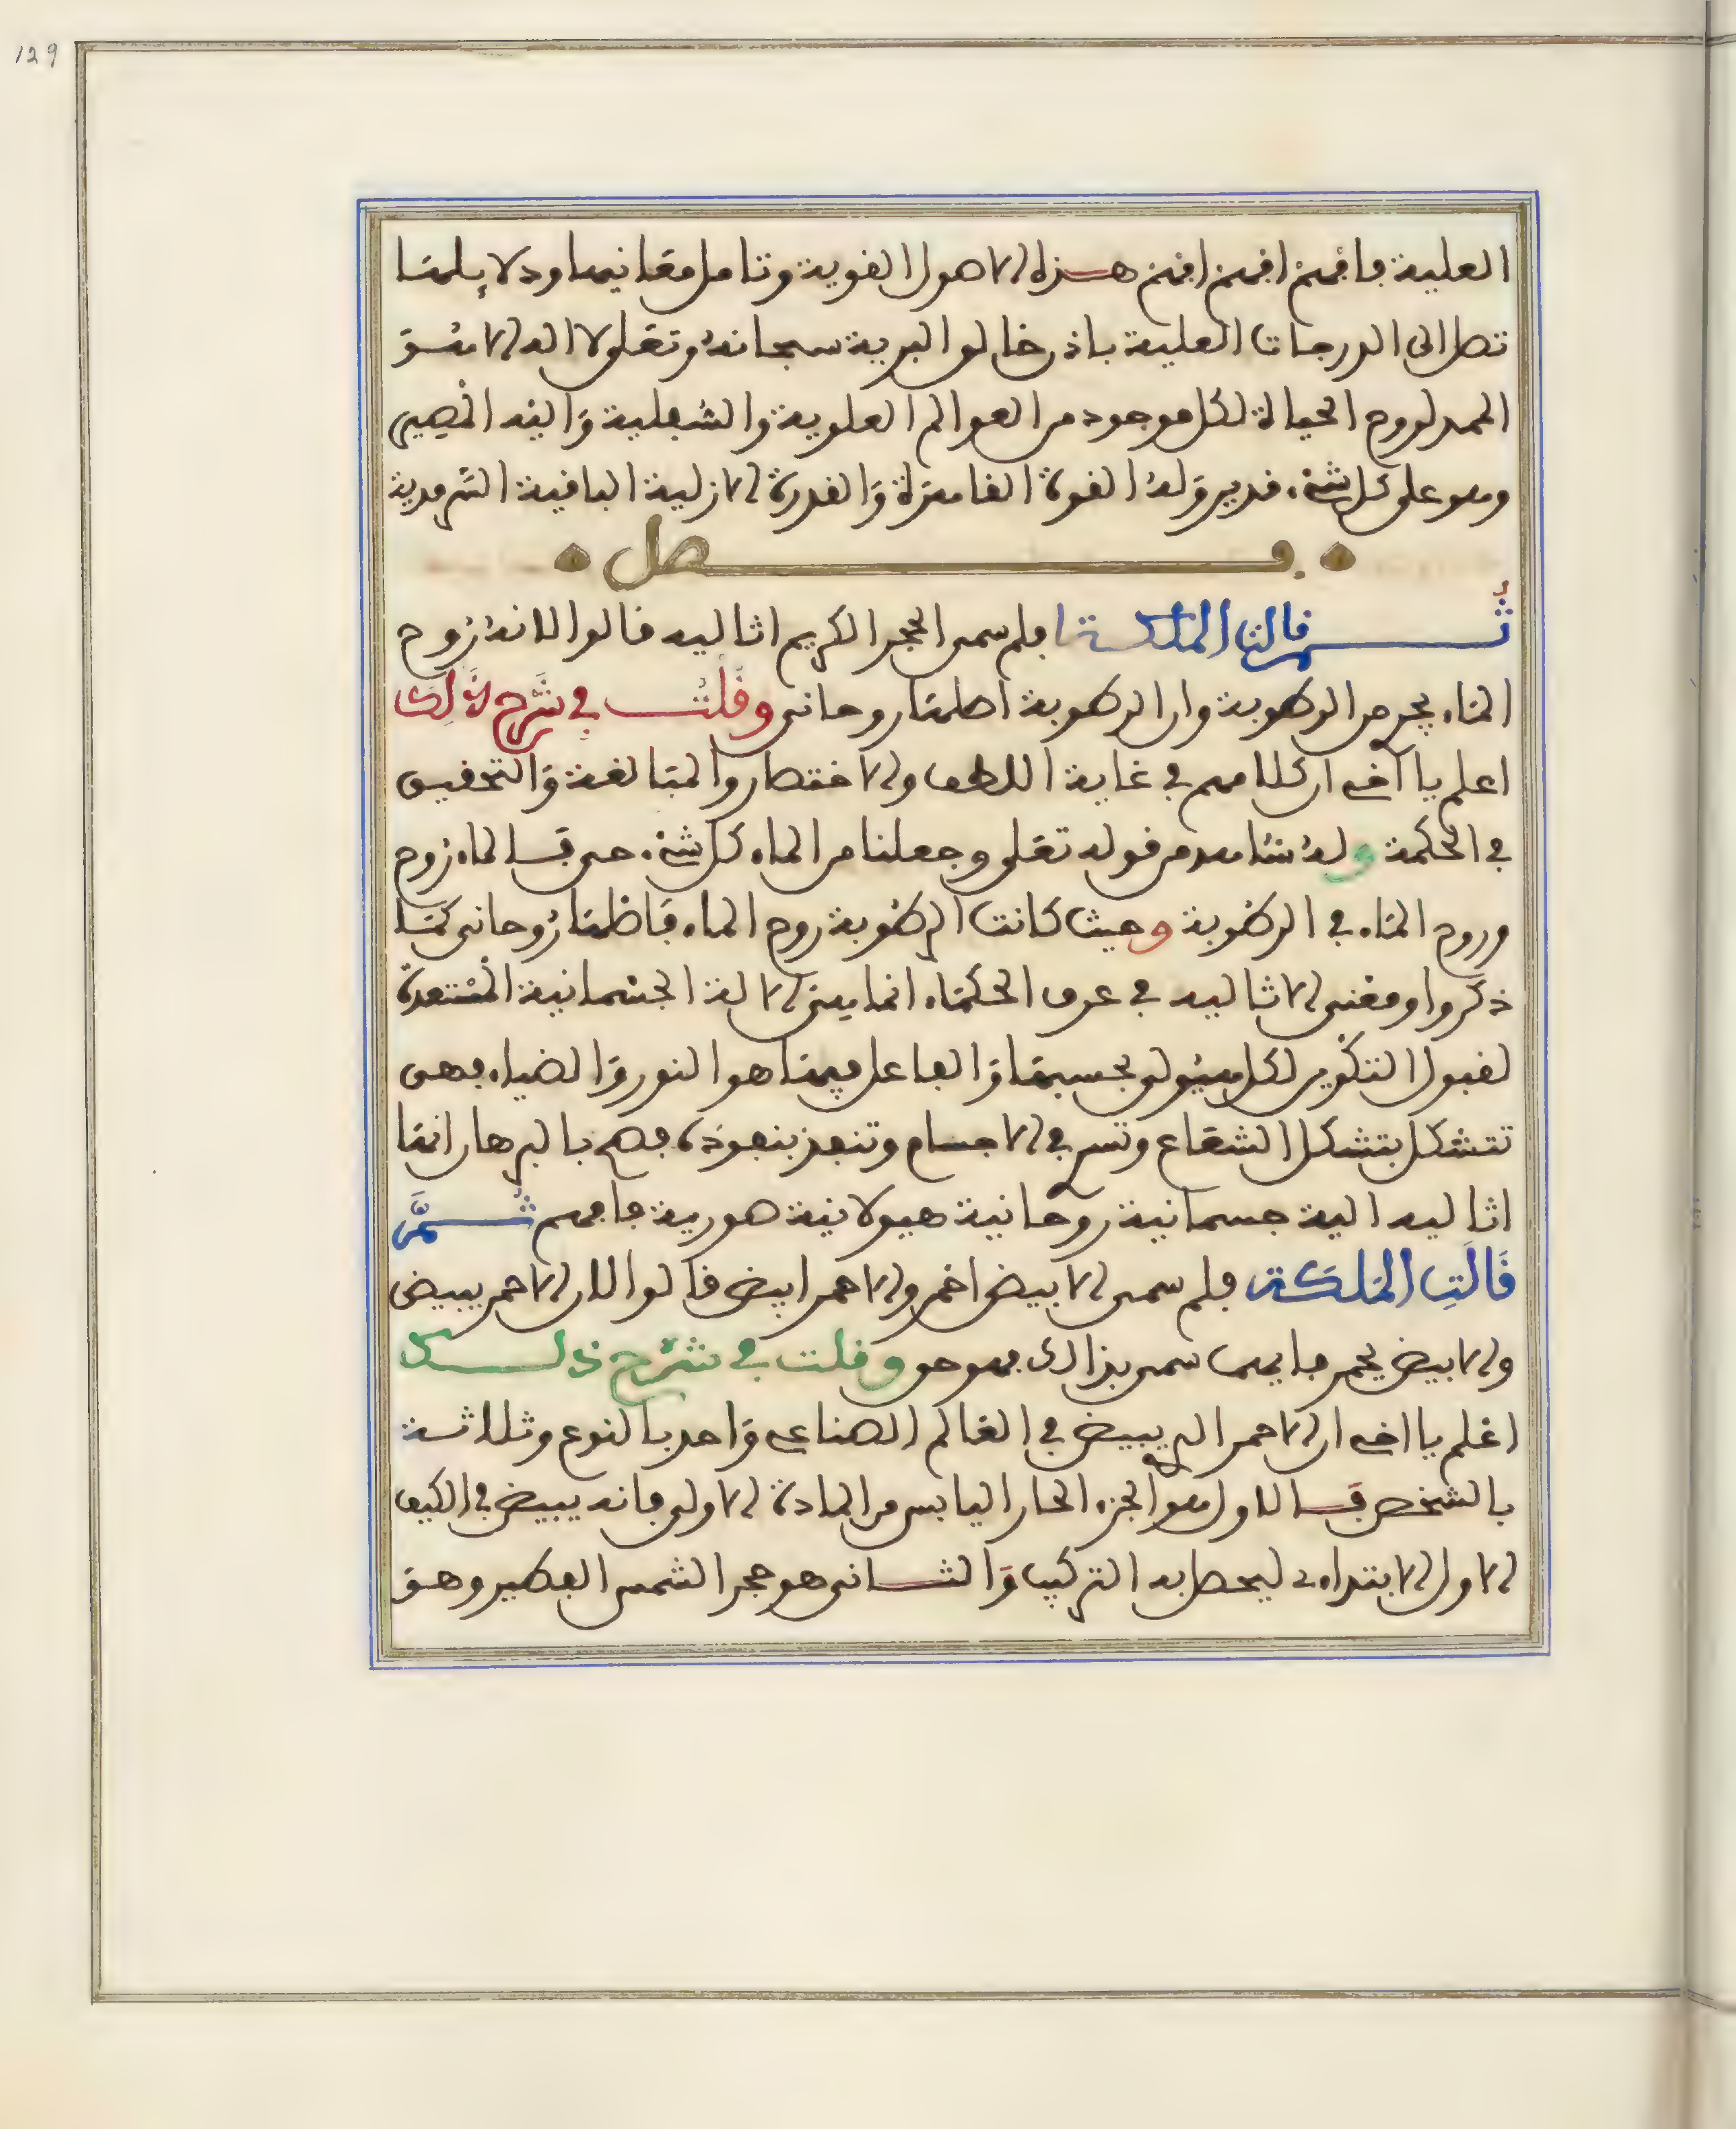 129
العلية فافهم افهم افهم هذه الاصول القوية وتامل معانيها ودلايلها
تصل الى الدرجات العلية باذن خالق البرية سبحانه وتعلى لا اله الا هو
الممد لروح الحياة لكل موجود من العوالم العلوية والسفلية واليه المصير
وهو على كل شيء قدير وله القوة القاهرة والقدرة الازلية الباقية السرمدية
فصل
ثم قالت الملكة فلم سمى الحجر الكريم اثاليه قالوا لانه روح
الماء يخرج من الرطوبة وان الرطوبة اصلها روحانى وقلت في شرح ذلك
اعلم يا اخي ان كلامهم في غاية اللطف والاختصار والمبالغة والتحقيق
في الحكمة وله شاهد من قوله تعلى وجعلنا من الماء كل شيء حي فالماء روح
وروح الماء في الرطوبة وحيث كانت الرطوبة روح الماء فاصلها روحانى كما
ذكروا ومعنى الاثاليه في عرف الحكماء انما هي الالة الجسمانية المستعدة
لقبول التكوين لكل هيولى بحسبها والفاعل فيها هو النور والضياء فهى
تتشكل بتشكل الشعاع وتسرى في الاجسام وتنفذ بنفوذه فصح بالبرهان انها
اثاليه الية جسمانية روحانية هيولانية صورية فافهم ثم
قالت الملكة فلم سمى الابيض احمر والاحمر ابيض قالوا لان الاحمر يبيض
والابيض يحمر فايهما سمى بذالك فهو حق وقلت في شرح ذلك
اعلم يا اخي ان الاحمر الذي يبيض في العالم الصناعي واحد بالنوع وثلاثة
بالشخص فالاول هو الجزء الحار اليابس من المادة الاولى فانه يبيض في الكيف
الاول الابتداءى ليحصل به التركيب والثانى هو حجر الشمس العطير وهو